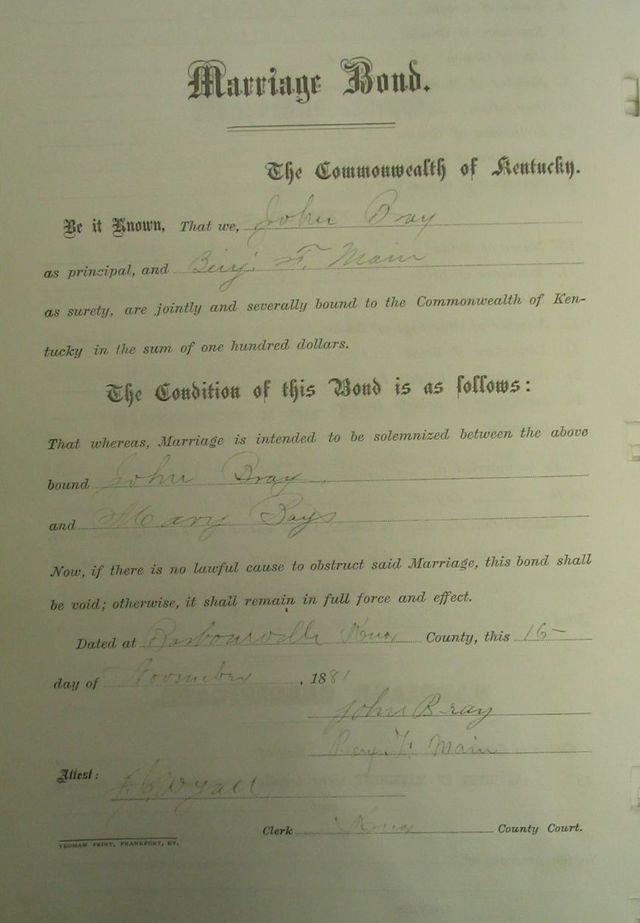 Marriage Bond.
The Commonwealth of Kentucky.
Be it Known, That we, John Bray
as principal, and Benj. F. Main
as surety, are jointly and severally bound to the Commonwealth of Ken-
tucky in the sum of one hundred dollars.
The Condition of this Bond is as follows:
That whereas, Marriage is intended to be solemnized between the above
bound John Bray
and Mary Bays
Now, if there is no lawful cause to obstruct said Marriage, this bond shall
be void; otherwise, it shall remain in full force and effect.
Dated at Barbourville Knox County, this
day of November, 1881
John Bray
Benj. F. Main
Attest:
Clerk Knox County Court.
YEOMAN PRINT, FRANKFORT, KY.